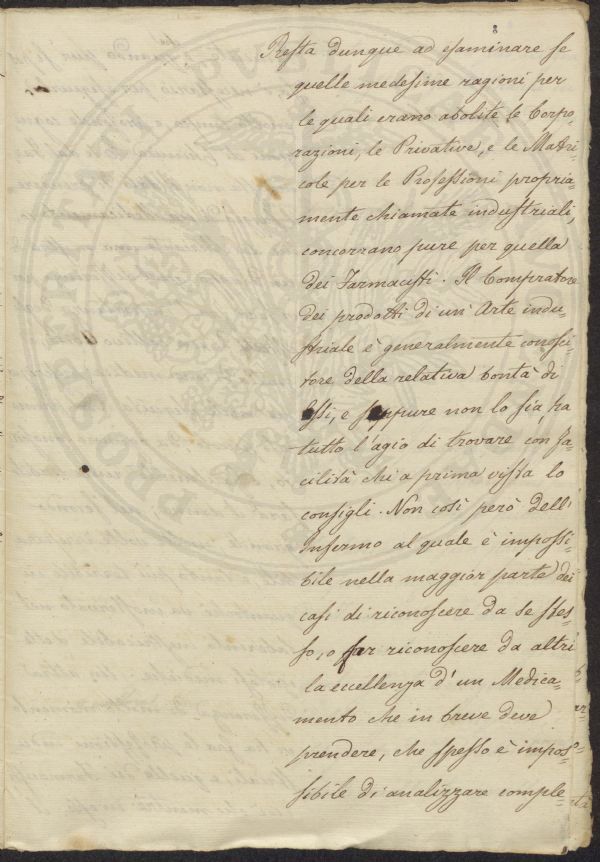 Resta dunque ad esaminare se
quelle medesime ragioni per
le quali erano abolite le Corpo-
razioni, le Privative, e le Matri-
cole per le Professioni propria-
mente chiamate industriali,
concorrano pure per quella
dei Farmacisti. Il Compratore
dei prodotti di un' Arte indu-
striale è generalmente conosci-
tore della relativa bontà di
essi, e seppure non lo sia, ha
tutto l'agio di trovare con fa-
cilità chi a prima vista lo
consigli. Non così però dell'
Infermo al quale è impossi-
bile nella maggior parte dei
casi di riconoscere da se stes-
so, o far riconoscere da altri
la eccellenza d'un Medica-
mento che in breve deve
prendere, che spesso è impos-
sibile di analizzare comple-